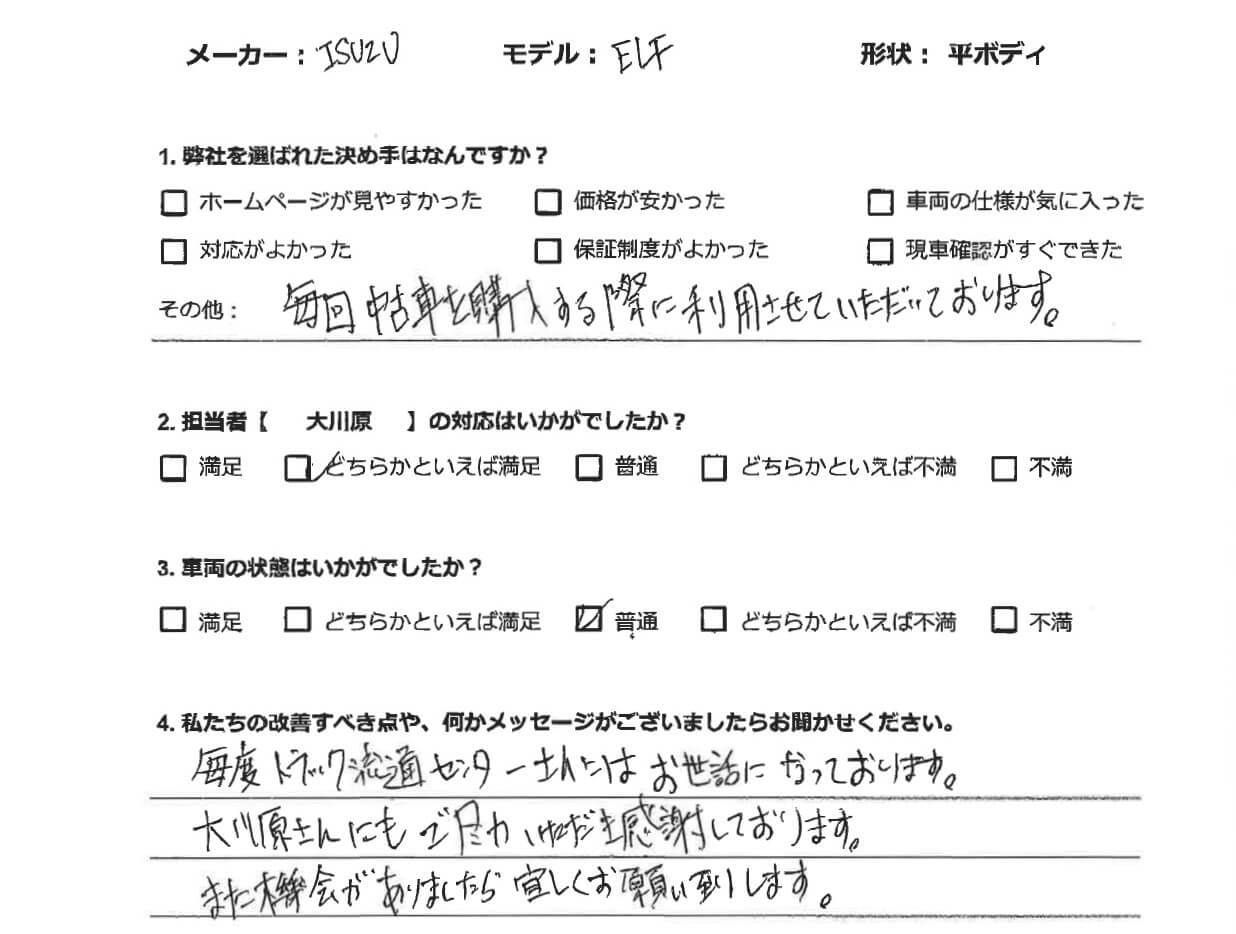 メーカー：ISUZU モデル：ELF 形状：平ボディ
1. 弊社を選ばれた決め手はなんですか？
□ ホームページが見やすかった □ 価格が安かった □ 車両の仕様が気に入った
□ 対応がよかった □ 保証制度がよかった □ 現車確認がすぐできた
その他： 毎回中古車を購入する際に利用させていただいております。
2. 担当者【 大川原 】の対応はいかがでしたか？
□ 満足 ☑ どちらかといえば満足 □ 普通 □ どちらかといえば不満 □ 不満
3. 車両の状態はいかがでしたか？
□ 満足 □ どちらかといえば満足 ☑ 普通 □ どちらかといえば不満 □ 不満
4. 私たちの改善すべき点や、何かメッセージがございましたらお聞かせください。
毎度トラック流通センターさんにはお世話になっております。
大川原さんにもご尽力いただき感謝しております。
また機会がありましたら宜しくお願い致します。